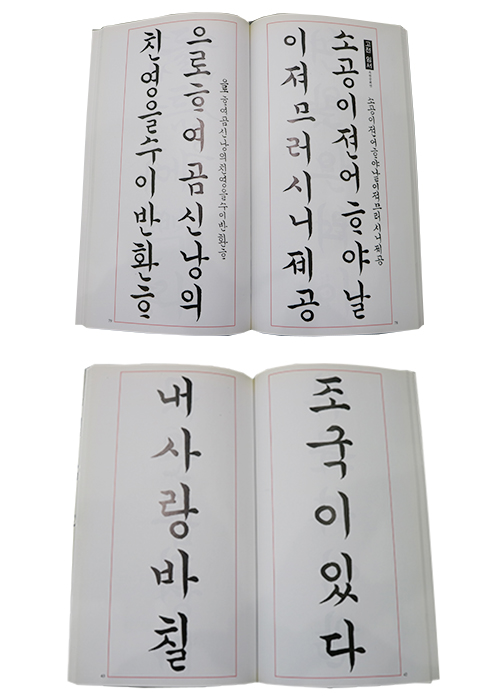 고전 임서
소공이젼어ᄒᆞ야날
이져므러시니졔공
소공이젼어ᄒᆞ야날이져므러시니졔공
으로ᄒᆞ여곰신낭의
친영을수이반환ᄒᆞ
으로ᄒᆞ여곰신낭의친영을수이반환ᄒᆞ
조국이있다
내사랑바칠